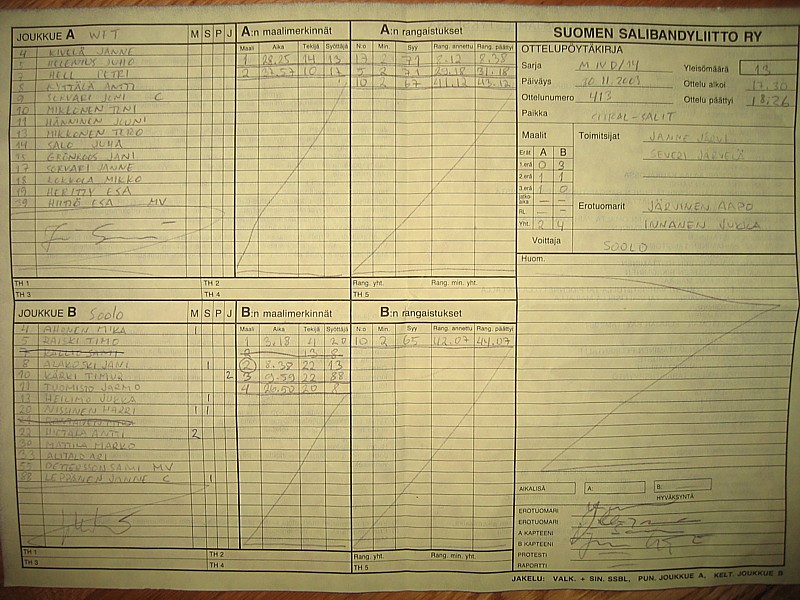 JOUKKUE A WIT M S P J
A:n maalimerkinnät
Maali Aika Tekijä Syöttäjä
1 28.25 14 13
2 37.57 10 17
A:n rangaistukset
N:o Min. Syy Rang. annettu Rang. päättyi
17 2 71 6.12 8.38
5 2 71 29.18 31.18
10 2 67 41.12 43.12
4 KIVELÄ JANNE
7 HELL PETRI
8 KYTTÄLÄ ANTTI
9 SORVARI JONI C
10 MIKKONEN TONI
11 HÄNNINEN JONI
13 MIKKONEN TERO
14 SALO JUHA
15 GRÖNROOS JANI
17 SORVARI JANNE
18 KOKKOLA MIKKO
19 HERITTY ESA
39 HIITIÖ ESA MV
TH 1 TH 2 Rang. yht. Rang. min. yht.
TH 3 TH 4 TH 5
JOUKKUE B Soolo M S P J
B:n maalimerkinnät
Maali Aika Tekijä Syöttäjä
1 3.18 4 20
2 13 8
2 8.38 22 13
3 9.59 22 88
4 26.50 20 8
B:n rangaistukset
N:o Min. Syy Rang. annettu Rang. päättyi
10 2 65 42.07 44.07
4 AHONEN MIKA 1
5 RAISKI TIMO
7 KALLIO SAMI
8 ALAKOSKI JANI 1
10 KÄRKI TIMUR 2
11 TUOMISTO JARMO
13 HEILIMO JUKKA 1
20 NISSINEN HARRI 1 1
22 HIETALA ANTTI 2
30 MATTILA MARKO
33 ALITALO ARI
55 PETTERSSON SAMI MV
88 LEPPÄNEN JANNE C 1
TH 1 TH 2 Rang. yht. Rang. min. yht.
TH 3 TH 4 TH 5
SUOMEN SALIBANDYLIITTO RY
OTTELUPÖYTÄKIRJA
Sarja M IV D/14 Yleisömäärä 13
Päiväys 20.11.2003 Ottelu alkoi 17.30
Ottelunumero 413 Ottelu päättyi 18.26
Paikka PIRKAL-SALIT
Maalit Toimitsijat JANNE JÄRVI
Erät A B SEVERI JÄRVELÄ
1.erä 0 3
2.erä 1 1
3.erä 1 0
jatko-aika – –
RL – –
Yht. 2 4
Erotuomarit JÄRVINEN AAPO
INNANEN JUKKA
Voittaja SOOLO
Huom.
AIKALISÄ A: B:
HYVÄKSYNTÄ
EROTUOMARI
EROTUOMARI
A KAPTEENI
B KAPTEENI
PROTESTI
RAPORTTI
JAKELU: VALK. + SIN. SSBL, PUN. JOUKKUE A, KELT. JOUKKUE B